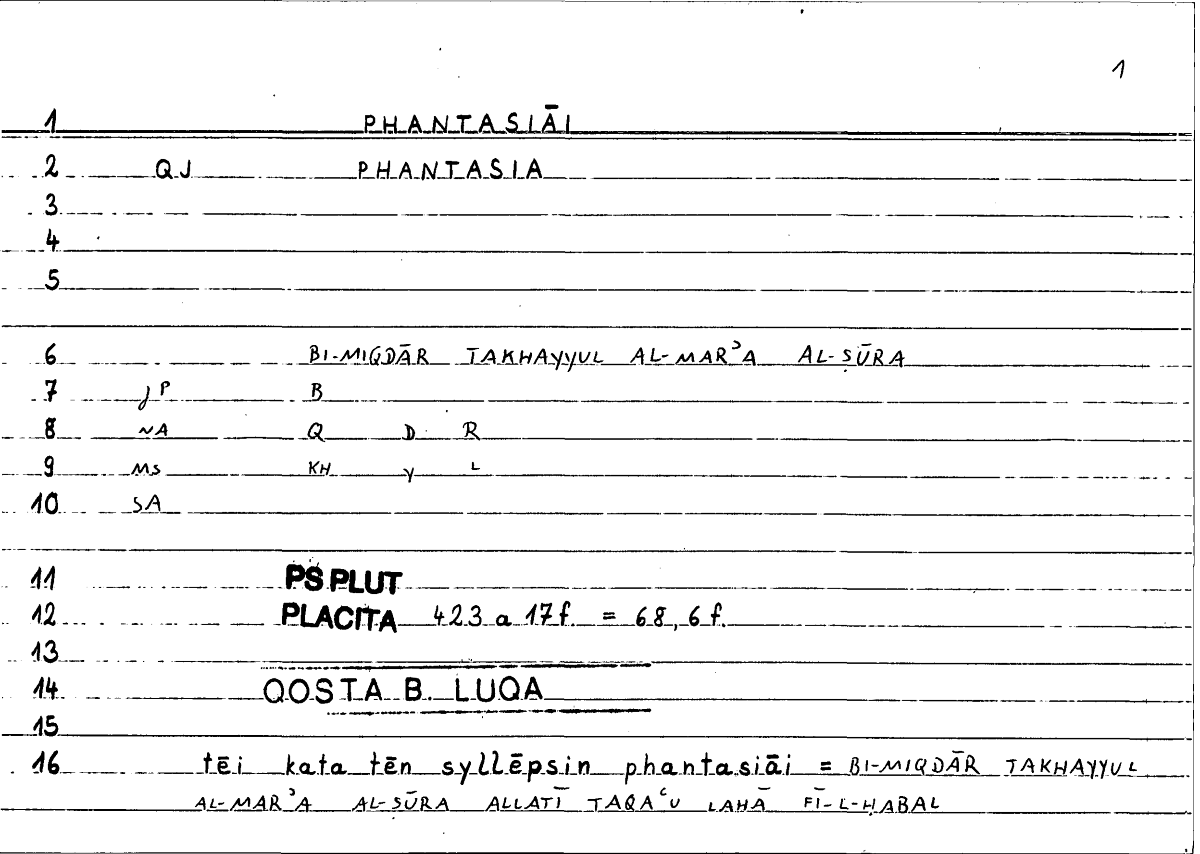 1
1 PHANTASIĀI
2 QJ PHANTASIA
3
4
5
6 BI-MIQDĀR TAKHAYYUL AL-MARʾA AL-ṢŪRA
7 JP B
8 NA Q D R
9 MS KH Y L
10 SA
11 PS PLUT
12 PLACITA 423 a 17f. = 68,6 f.
13
14 QOSTA B. LUQA
15
16 tēi kata tēn syllēpsin phantasiāi = BI-MIQDĀR TAKHAYYUL
AL-MARʾA AL-ṢŪRA ALLATĪ TAQAʿU LAHĀ FĪ-L-ḤABAL